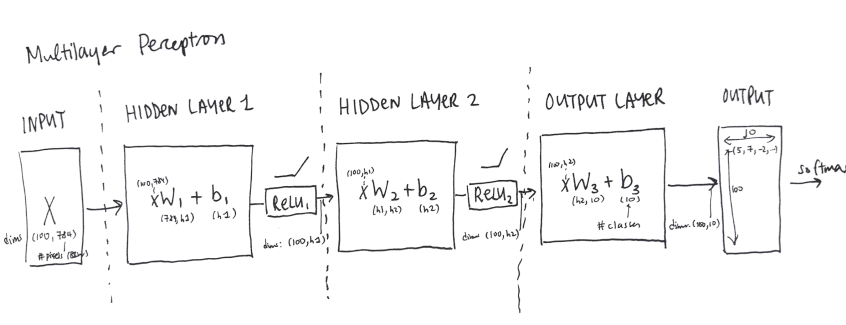 Multilayer Perceptron
INPUT
X
dims (100, 784)
#pixels
HIDDEN LAYER 1
(100,784)
XW1 + b1
(784,h1) (h1)
ReLU1
dims: (100,h1)
HIDDEN LAYER 2
(100,h1)
XW2 + b2
(h1,h2) (h2)
ReLU2
dims (100,h2)
OUTPUT LAYER
(100,h2)
XW3 + b3
(h2,10) (10)
#classes
dims: (100,10)
OUTPUT
10
(5, 7, -2, ..)
100
softma